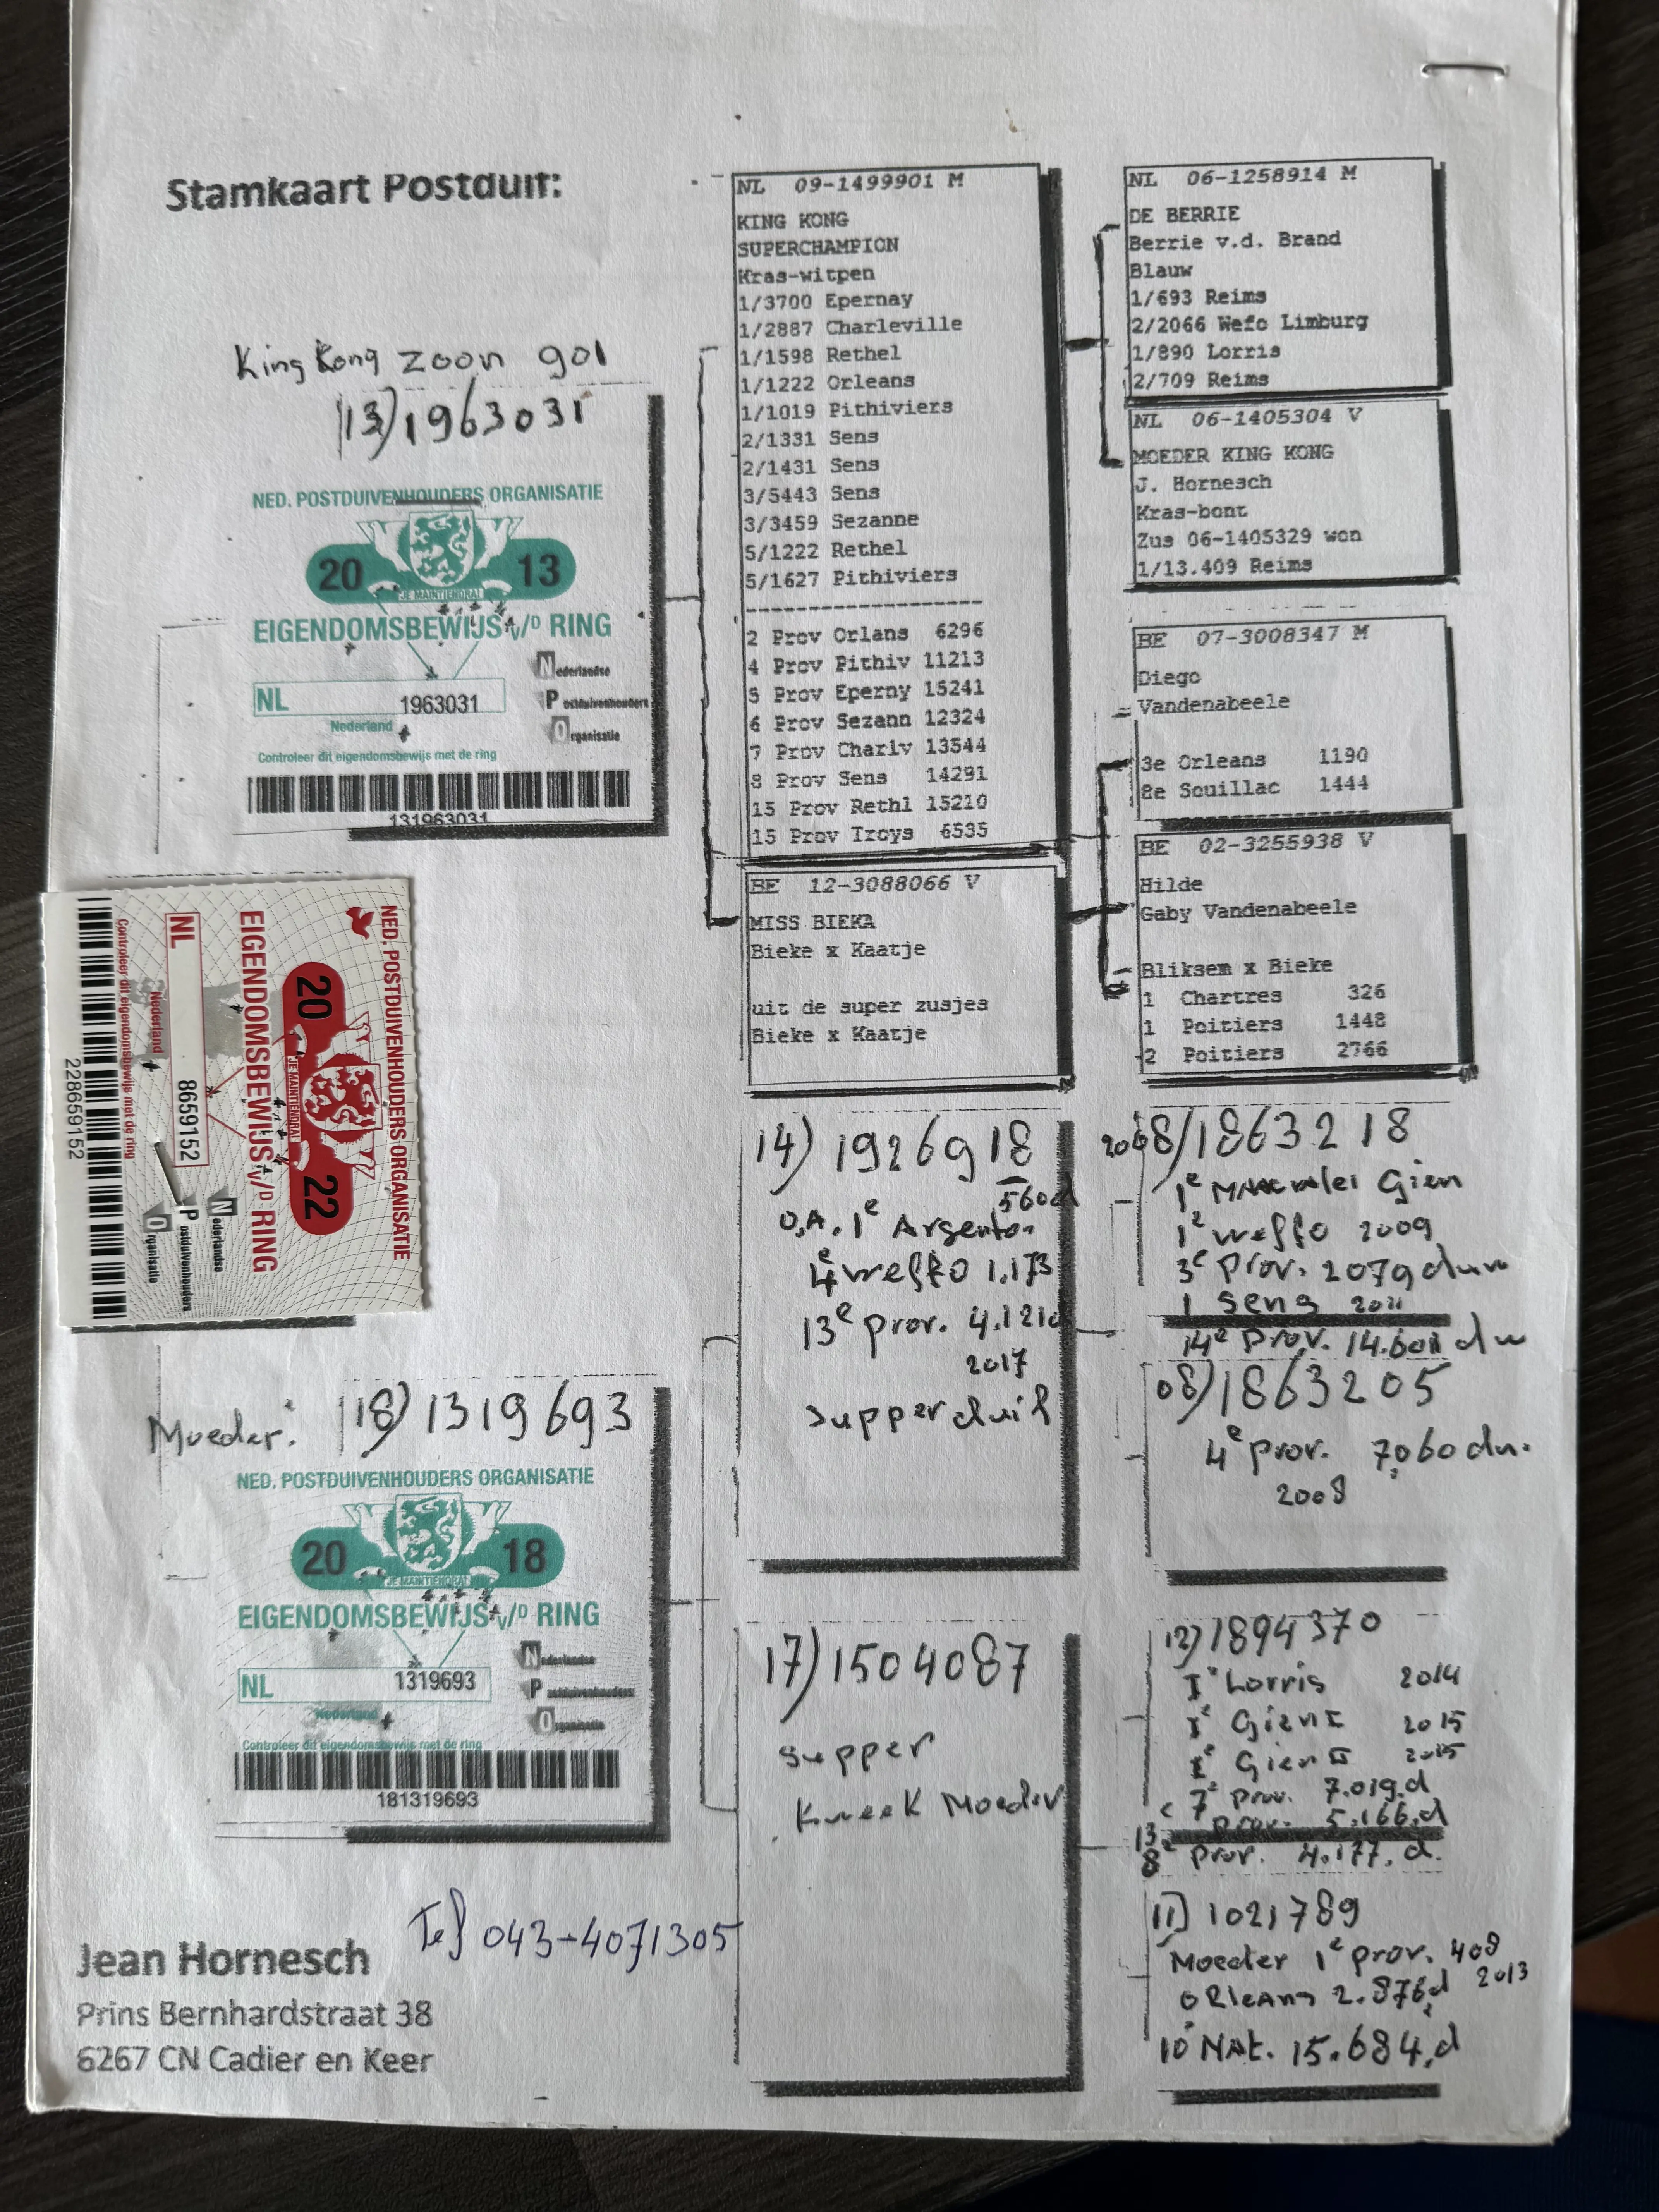 Stamkaart Postduif:
King Kong zoon 901
13) 1963031
NED. POSTDUIVENHOUDERS ORGANISATIE
20 13
JE MAINTIENDRAI
EIGENDOMSBEWIJS v/D RING
NL 1963031
Nederland
Nederlandse
Postduivenhouders
Organisatie
Controleer dit eigendomsbewijs met de ring
131963031
NED. POSTDUIVENHOUDERS ORGANISATIE
20 22
JE MAINTIENDRAI
EIGENDOMSBEWIJS v/D RING
NL 8659152
Nederland
Nederlandse
Postduivenhouders
Organisatie
Controleer dit eigendomsbewijs met de ring
228659152
Moeder: 18) 1319693
NED. POSTDUIVENHOUDERS ORGANISATIE
20 18
JE MAINTIENDRAI
EIGENDOMSBEWIJS v/D RING
NL 1319693
Nederland
Nederlandse
Postduivenhouders
Organisatie
Controleer dit eigendomsbewijs met de ring
181319693
Tel 043-4071305
Jean Hornesch
Prins Bernhardstraat 38
6267 CN Cadier en Keer
NL 09-1499901 M
KING KONG
SUPERCHAMPION
Kras-witpen
1/3700 Epernay
1/2887 Charleville
1/1598 Rethel
1/1222 Orleans
1/1019 Pithiviers
2/1331 Sens
2/1431 Sens
3/5443 Sens
3/3459 Sezanne
5/1222 Rethel
5/1627 Pithiviers
-------------------
2 Prov Orlans 6296
4 Prov Pithiv 11213
5 Prov Eperny 15241
6 Prov Sezann 12324
7 Prov Charlv 13544
8 Prov Sens 14291
15 Prov Rethl 15210
15 Prov Troys 6535
BE 12-3088066 V
MISS BIEKA
Bieke x Kaatje
uit de super zusjes
Bieke x Kaatje
14) 1926918
560d
O.A. 1e Argenton
4e weffo 1.173
13e prov. 4.121d
2017
supper duif
17) 1504087
supper
kweek Moeder
NL 06-1258914 M
DE BERRIE
Berrie v.d. Brand
Blauw
1/693 Reims
2/2066 Wefo Limburg
1/890 Lorris
2/709 Reims
NL 06-1405304 V
MOEDER KING KONG
J. Hornesch
Kras-bont
Zus 06-1405329 won
1/13.409 Reims
BE 07-3008347 M
Diego
Vandenabeele
3e Orleans 1190
8e Souillac 1444
BE 02-3255938 V
Hilde
Gaby Vandenabeele
Bliksem x Bieke
1 Chartres 326
1 Poitiers 1448
2 Poitiers 2766
08/1863218
1e Gien
1e weffo 2009
3e prov. 2079 duiv
1 Sens 2011
14e prov.
08) 1863205
4e prov. 7.060 du.
2008
12) 1894370
1e Lorris 2014
1e Gien I 2015
1e Gien II 2015
7e prov. 7.019.d
13e prov. 5.166.d
8e prov. 4.177.d.
11) 1021789
Moeder 1e prov. 408
Orleans 2.876d 2013
10e NAt. 15.684.d